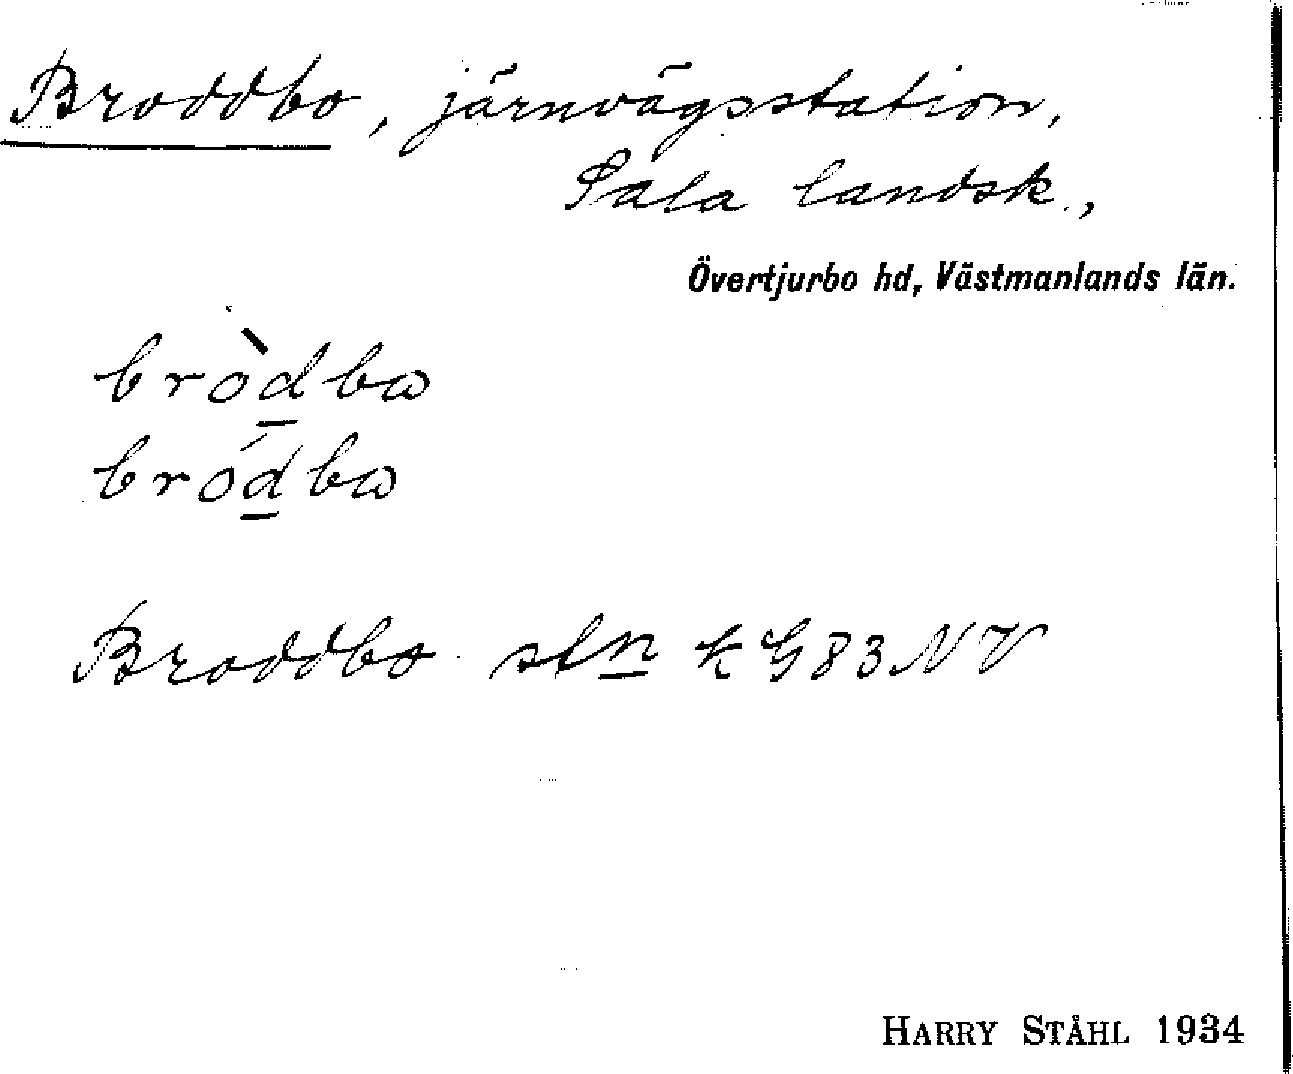 Broddbo, järnvägsstation,
Sala landsk.,
Övertjurbo hd, Västmanlands län.
bròd̲bω
bród̲bω
Broddbo stn k G83NV
HARRY STÅHL 1934